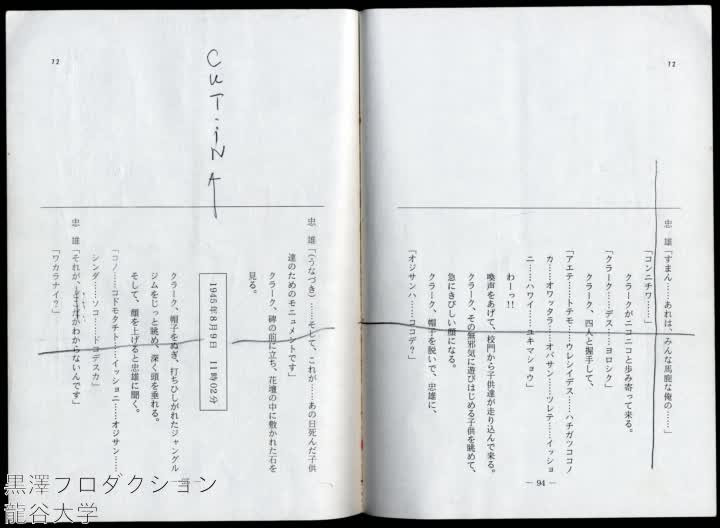 12
忠　雄「すまん……あれは、みんな馬鹿な俺の……」
「コンニチワ……」
クラークがニコニコと歩み寄って来る。
「クラーク……デス……ヨロシク」
クラーク、四人と握手して、
「アエテ……トテモ……ウレシイデス……ハチガツココノ
カ……オワッタラ……オバサン……ツレテ……イッショ
ニ……ハワイ……ユキマショウ」
わーっ!!
喚声をあげて、校門から子供達が走り込んで来る。
クラーク、その無邪気に遊びはじめる子供を眺めて、
急にきびしい顔になる。
クラーク、帽子を脱いで、忠雄に、
「オジサンハ……ココデ?」
― 94 ―
12
CUT.iN
忠　雄「(うなづき)……そして、これが……あの日死んだ子供
達のためのモニュメントです」
クラーク、碑の前に立ち、花壇の中に敷かれた石を
見る。
1945年8月9日　11時02分
クラーク、帽子をぬぎ、打ちひしがれたジャングル
ジムをじっと眺め、深く頭を垂れる。
そして、顔を上げると忠雄に聞く。
「コノ……コドモタチト……イッショニ……オジサン……
シンダ……ソコ……ドコデスカ」
忠　雄「それが、どこだかわからないんです」
「ワカラナイ?」
黒澤プロダクション
龍谷大学